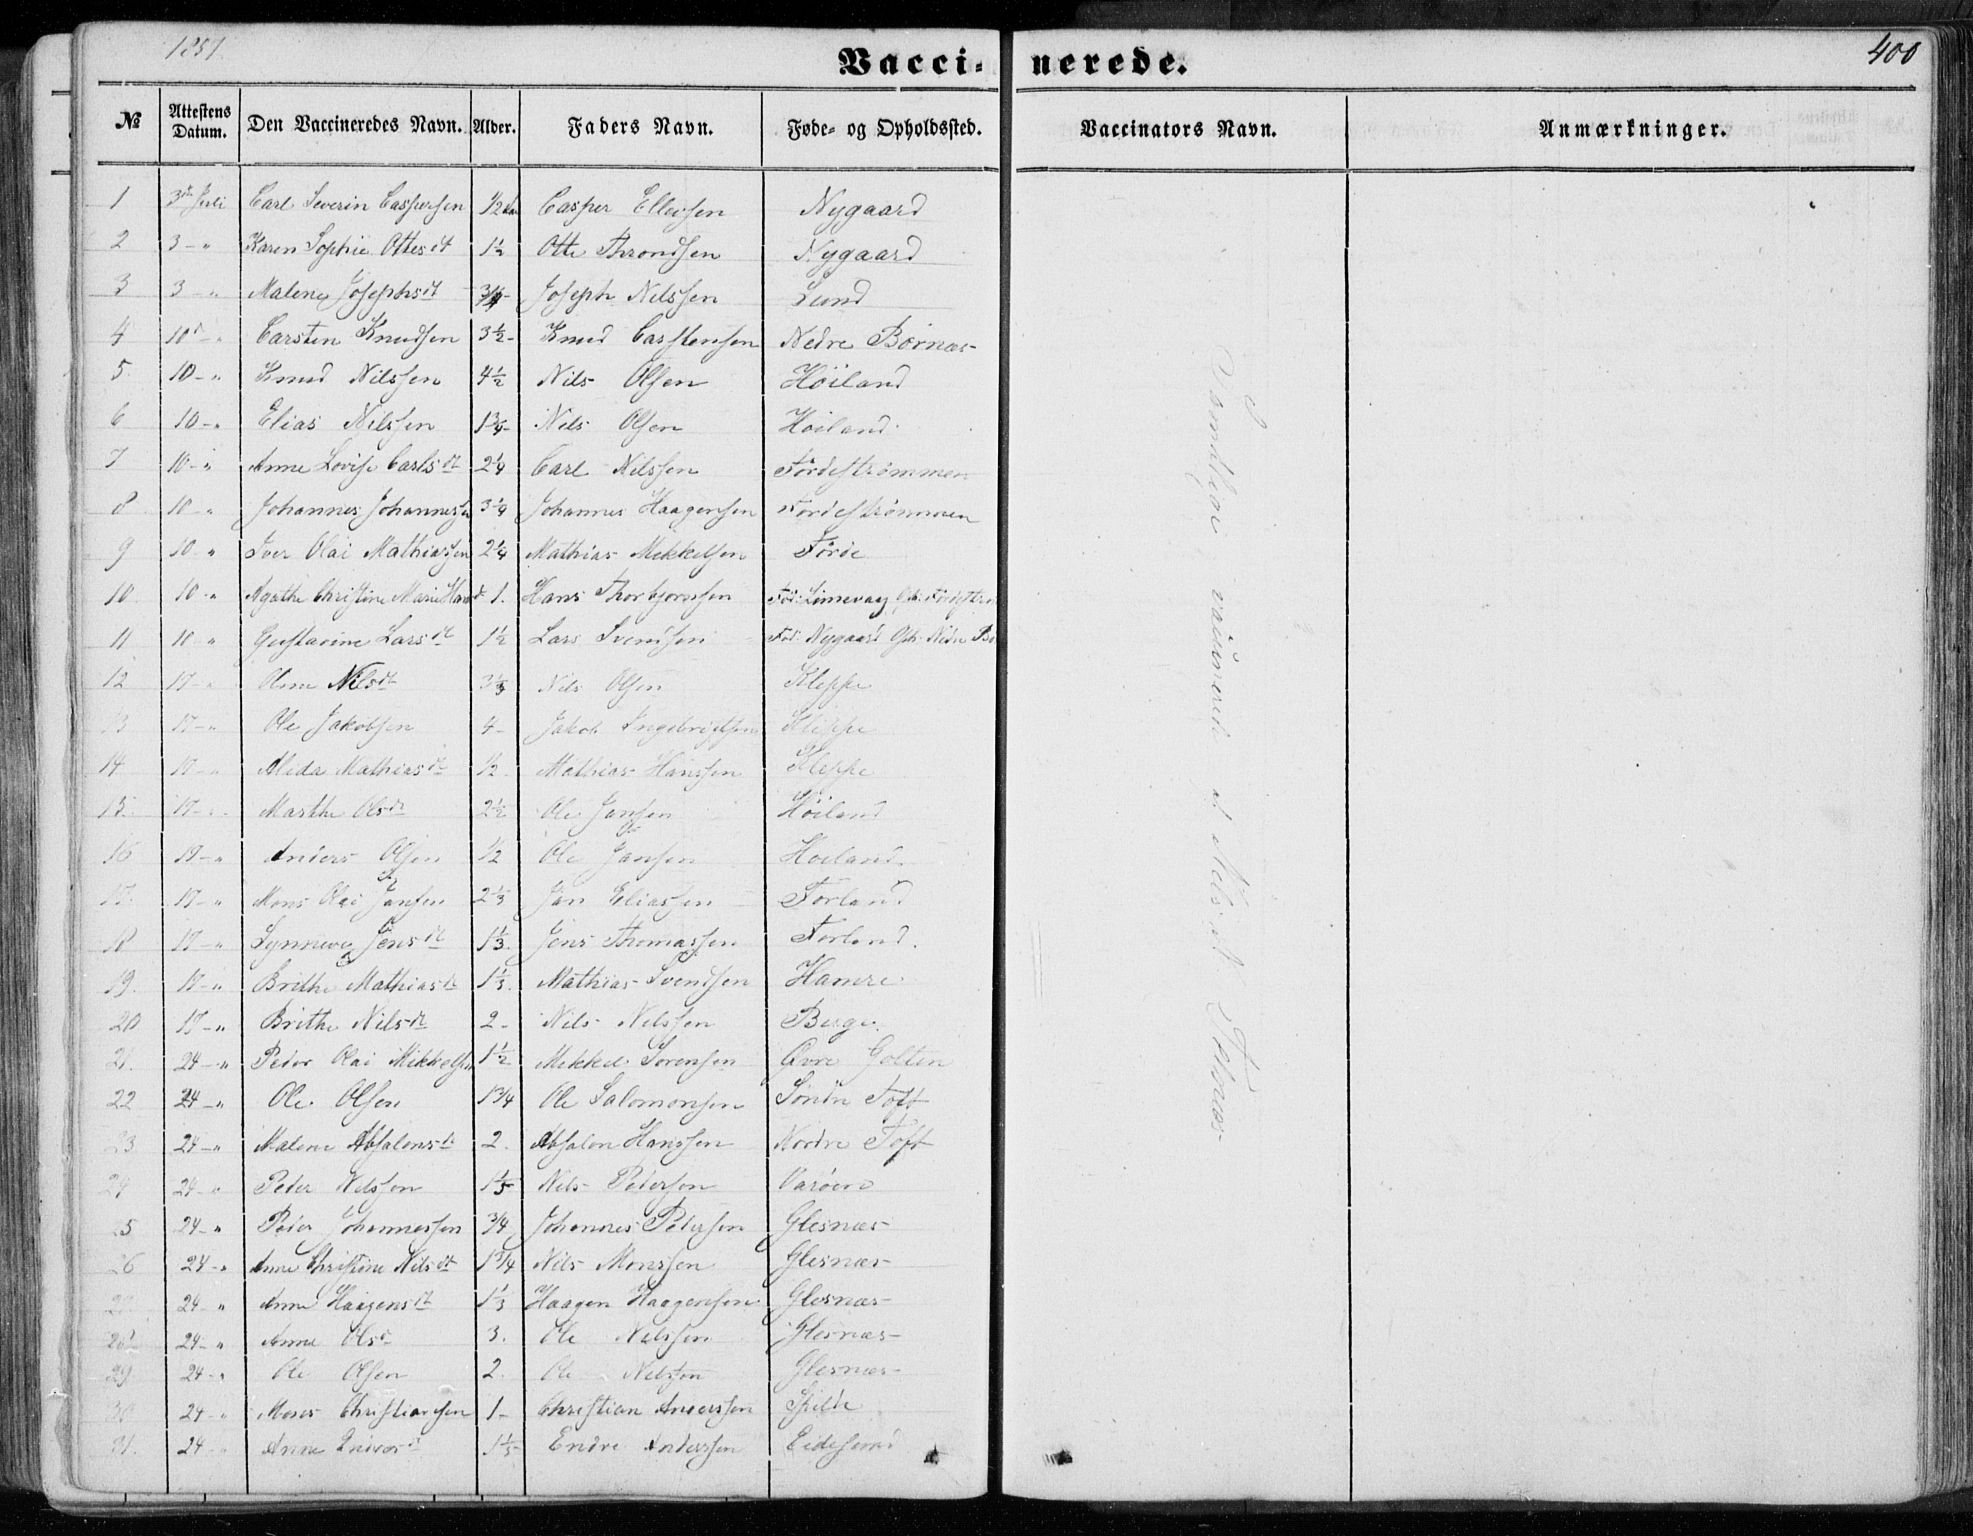 1851.
Vaccinerede.
400
№ Attestens Datum. Den Vaccineredes Navn. Alder. Faders Navn. Føde- og Opholdssted. Vaccinators Navn. Anmærkninger.
1 3die Juli Carl Severin Caspersen 1/2 Casper Ellevsen Nygaard
2 3 - " Karen Sophie Ottesdt 1½ Otte Throndsen Nygaard
3 3 - " Malene Josephsdt 3/4 Joseph Nilssen Lund
4 10d - " Carsten Knudsen 3½ - Knud Carstensen Nedre Børnæs
5 10 - " Knud Nilssen 4½ Nils Olsen Höiland
6 10 - " Elias Nilssen 1¾ - Nils Olsen Höiland
7 10 - " Anne Lovise Carlsdt 2¼ Carl Nilssen Fördestrømmen
8 10 " Johannes Johannessen 3¼ Johannes Haagensen Fördestrømmen
9 10 " Iver Olai Mathiassen 2¼ Mathias Mikkelsen Förde
10 10 " Agathe Christine Marie Hansdt 1. Hans Thorbjørnsen Fød: Limevaag Oph: Fördestrø
11 10 " Gustavine Larsdt 1½ Lars Svendsen Fød: Nygaard Oph: Nedre Bø
12 17 - " Anne Nilsdt 3⅓ Nils Olsen Kleppe
13 17 - " Ole Jakobsen 4 - Jakob Ingebrigtsen Kleppe
14 17 - " Alida Mathiasdt ½ Mathias Hanssen Kleppe
15. 17 - " Marthe Olsdt 2½ Ole Jansen Höiland
16 17 - " Anders Olsen ½ Ole Jansen Höiland
17. 17 - " Mons Olai Jansen 2⅓ Jan Eliassen Forland
18 17 - " Synneve Jensdt 1⅓. Jens Thomassen Forland.
19. 17 - " Brithe Mathiasdt 1⅓. Mathias Svendsen Hamre
20 17 - " Brithe Nilsdt 2 - Nils Nilssen Berge
21. 24 - " Peder Olai Mikkelsen 1½ Mikkel Sørensen Øvre Golten
22 24 - " Ole Olsen 1¾ Ole Salomonsen Söndre Toft
23 24 - " Malene Absalonsdt 2. Absalon Hanssen Nordre Toft
24 24 - " Peder Nilssen 1⅓ Nils Pedersen Varöen
25 24 - " Peder Johannessen ¾ Johannes Pedersen Glesnæs
26 24 - " Anne Christine Nilsdt 1¾ Nils Monssen Glesnæs
27 24 - " Anne Haagensdt 1⅓ Haagen Haagensen Glesnæs
28 24 - " Anne Olsdt 3. Ole Nilssen Glesnæs
29 24 - " Ole Olsen 2. Ole Nilssen Glesnæs
30 24 - " Moses Christiansen 1 - Christian Anderssen Spilde
31. 24 - " Anne Endresdt 1⅓ Endre Anderssen Eidesund
Samtlige vaccinerede af Nils